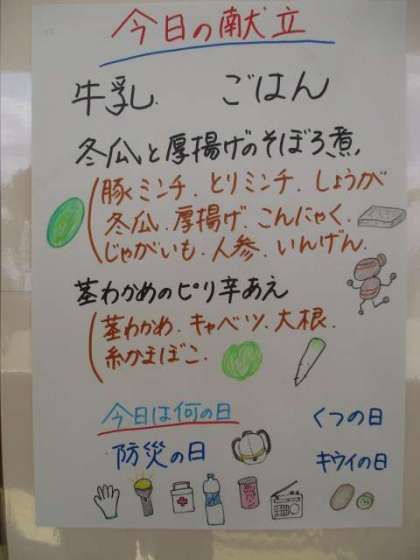 今日の献立
牛乳. ごはん
冬瓜と厚揚げのそぼろ煮
豚ミンチ. とりミンチ. しょうが
冬瓜. 厚揚げ. こんにゃく.
じゃがいも. 人参. いんげん.
茎わかめのピリ辛あえ
茎わかめ. キャベツ. 大根.
糸かまぼこ.
今日は何の日
くつの日
防災の日
キウイの日